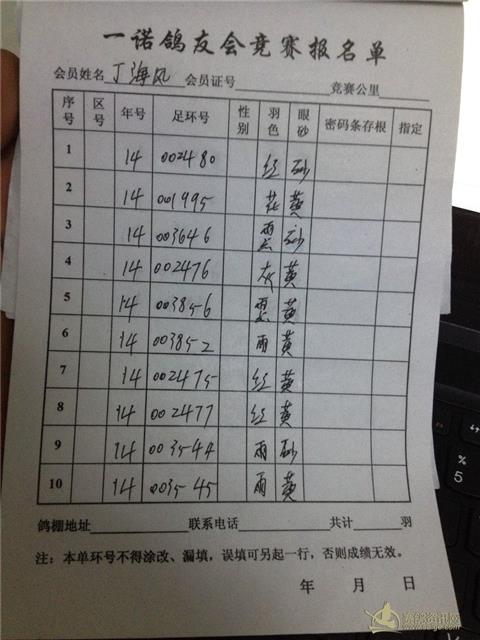 一诺鸽友会竞赛报名单
会员姓名 丁海凤 会员证号 竞赛公里
序号 区号 年号 足环号 性别 羽色 眼砂 密码条存根 指定
1 14 002480 红 砂
2 14 001995 花 黄
3 14 003646 雨点 砂
4 14 002476 灰 黄
5 14 003856 雨点 黄
6 14 003852 雨 黄
7 14 002475 红 黄
8 14 002477 红 黄
9 14 003544 雨 砂
10 14 003545 雨 黄
鸽棚地址 联系电话 共计 羽
注：本单环号不得涂改、漏填，误填可另起一行，否则成绩无效。
年 月 日
%
5